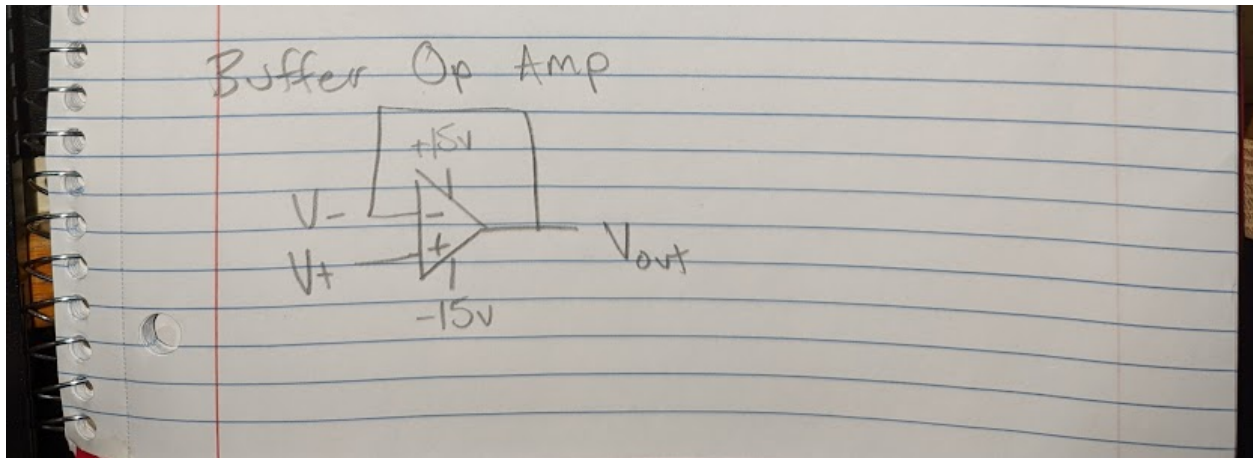 Buffer Op Amp
+15v
V-
-
V+
+
Vout
-15v